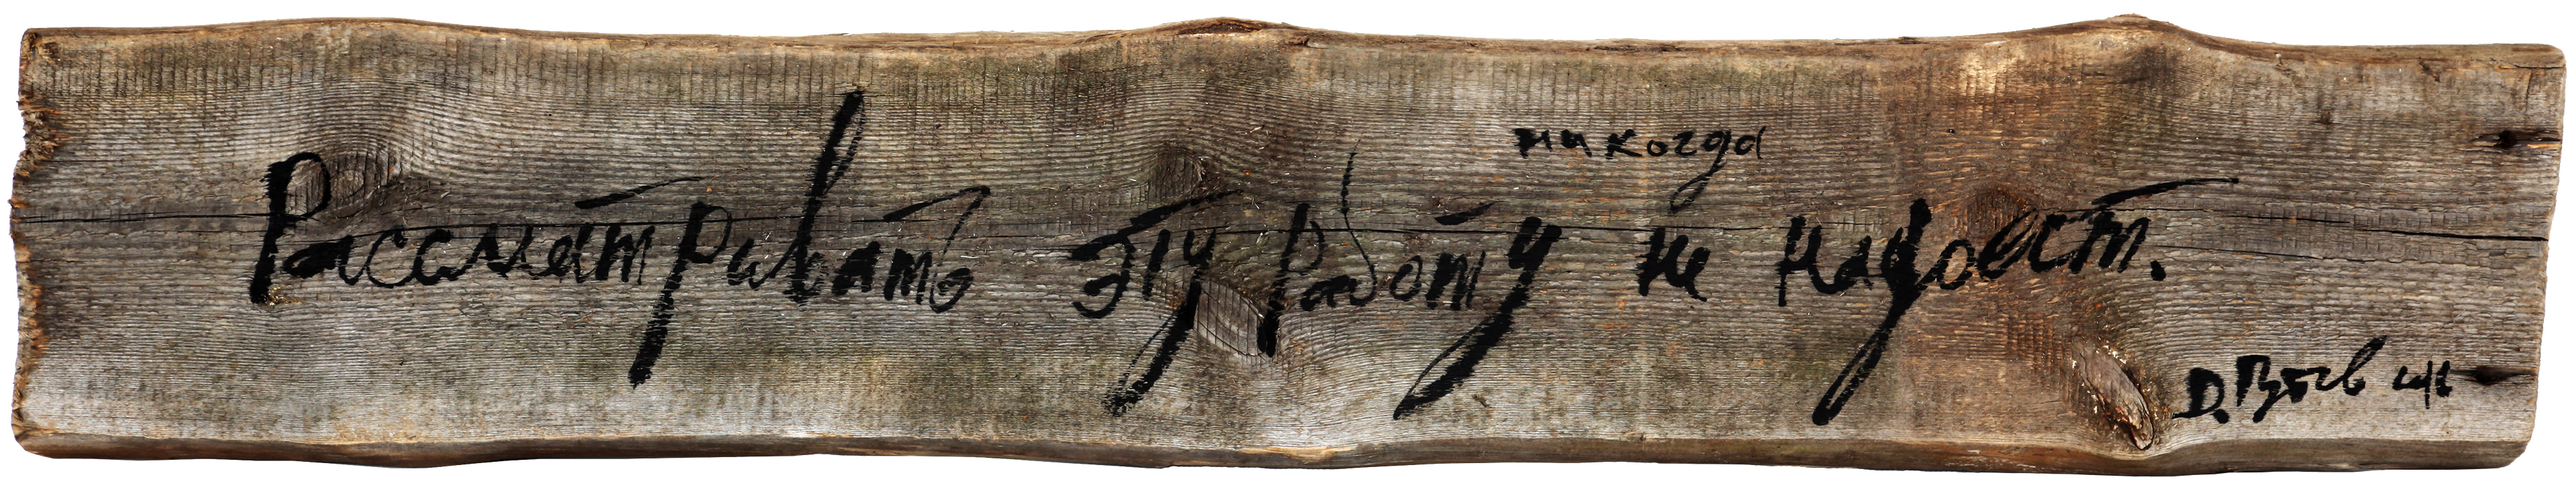 никогда
Рассматривать эту работу не надоест.
Д.